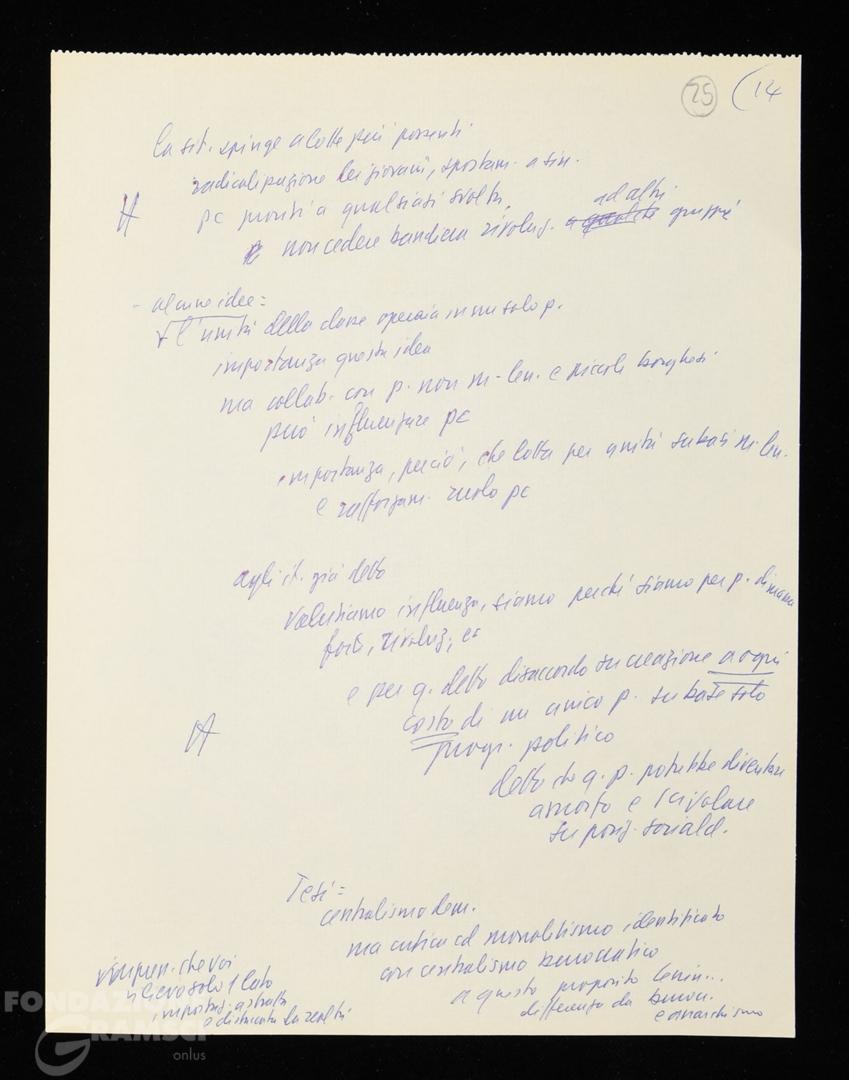 25 (14
la sit. spinge a lotte più possenti
radicalizzazione dei giovani, spostam. a sin.
pc pronti a qualsiasi svolta,
ad altri
non cedere bandiera rivoluz. gruppi
- alcune idee =
l'unità della classe operaia in un solo p.
importanza questa idea
ma collab. con p. non m-len. e piccoli borghesi
può influenzare pc
importanza, perciò, che lotta per unità su basi m-len.
e rafforzam. ruolo pc
agli it. già detto
valutiamo influenza, siamo perché siamo per p. di massa
forti, rivoluz, ec
e per q. detto disaccordo su creazione a ogni
costo di un unico p. su base solo
progr. politico
detto che q. p. potrebbe diventare
amorfo e scivolare
su posiz. sociald.
Tesi =
centralismo dem.
ma critica al monolitismo identificato
con centralismo burocratico
a questo proposito Lenin...
differenza da buroc.
e anarchismo
che voi
rilievo solo 1 lato
importanz. astratta
e distaccata da realtà
FONDAZIONE
GRAMSCI
onlus